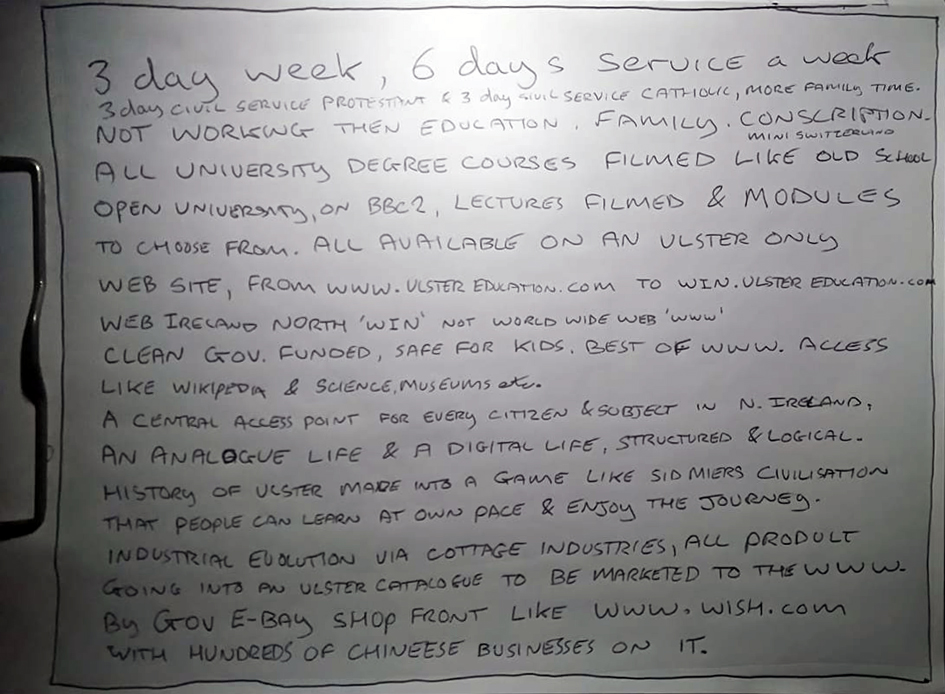 3 day week, 6 days service a week
3 day civil service protestant & 3 day civil service catholic, more family time.
NOT WORKING THEN EDUCATION. FAMILY. CONSCRIPTION.
MINI SWITZERLAND
ALL UNIVERSITY DEGREE COURSES FILMED LIKE OLD SCHOOL
OPEN UNIVERSITY, ON BBC2, LECTURES FILMED & MODULES
TO CHOOSE FROM. ALL AVAILABLE ON AN ULSTER ONLY
WEB SITE, FROM WWW.ULSTER EDUCATION.COM TO WIN.ULSTER EDUCATION.COM
WEB IRELAND NORTH 'WIN' NOT WORLD WIDE WEB 'WWW'
CLEAN GOV. FUNDED, SAFE FOR KIDS. BEST OF WWW. ACCESS
LIKE WIKIPEDIA & SCIENCE, MUSEUMS etc.
A CENTRAL ACCESS POINT FOR EVERY CITIZEN & SUBJECT IN N. IRELAND,
AN ANALOGUE LIFE & A DIGITAL LIFE, STRUCTURED & LOGICAL.
HISTORY OF ULSTER MADE INTO A GAME LIKE SID MIERS CIVILISATION
THAT PEOPLE CAN LEARN AT OWN PACE & ENJOY THE JOURNEY.
INDUSTRIAL EVOLUTION VIA COTTAGE INDUSTRIES, ALL PRODUCT
GOING INTO AN ULSTER CATALOGUE TO BE MARKETED TO THE WWW.
BY GOV E-BAY SHOP FRONT LIKE WWW.WISH.COM
WITH HUNDREDS OF CHINEESE BUSINESSES ON IT.